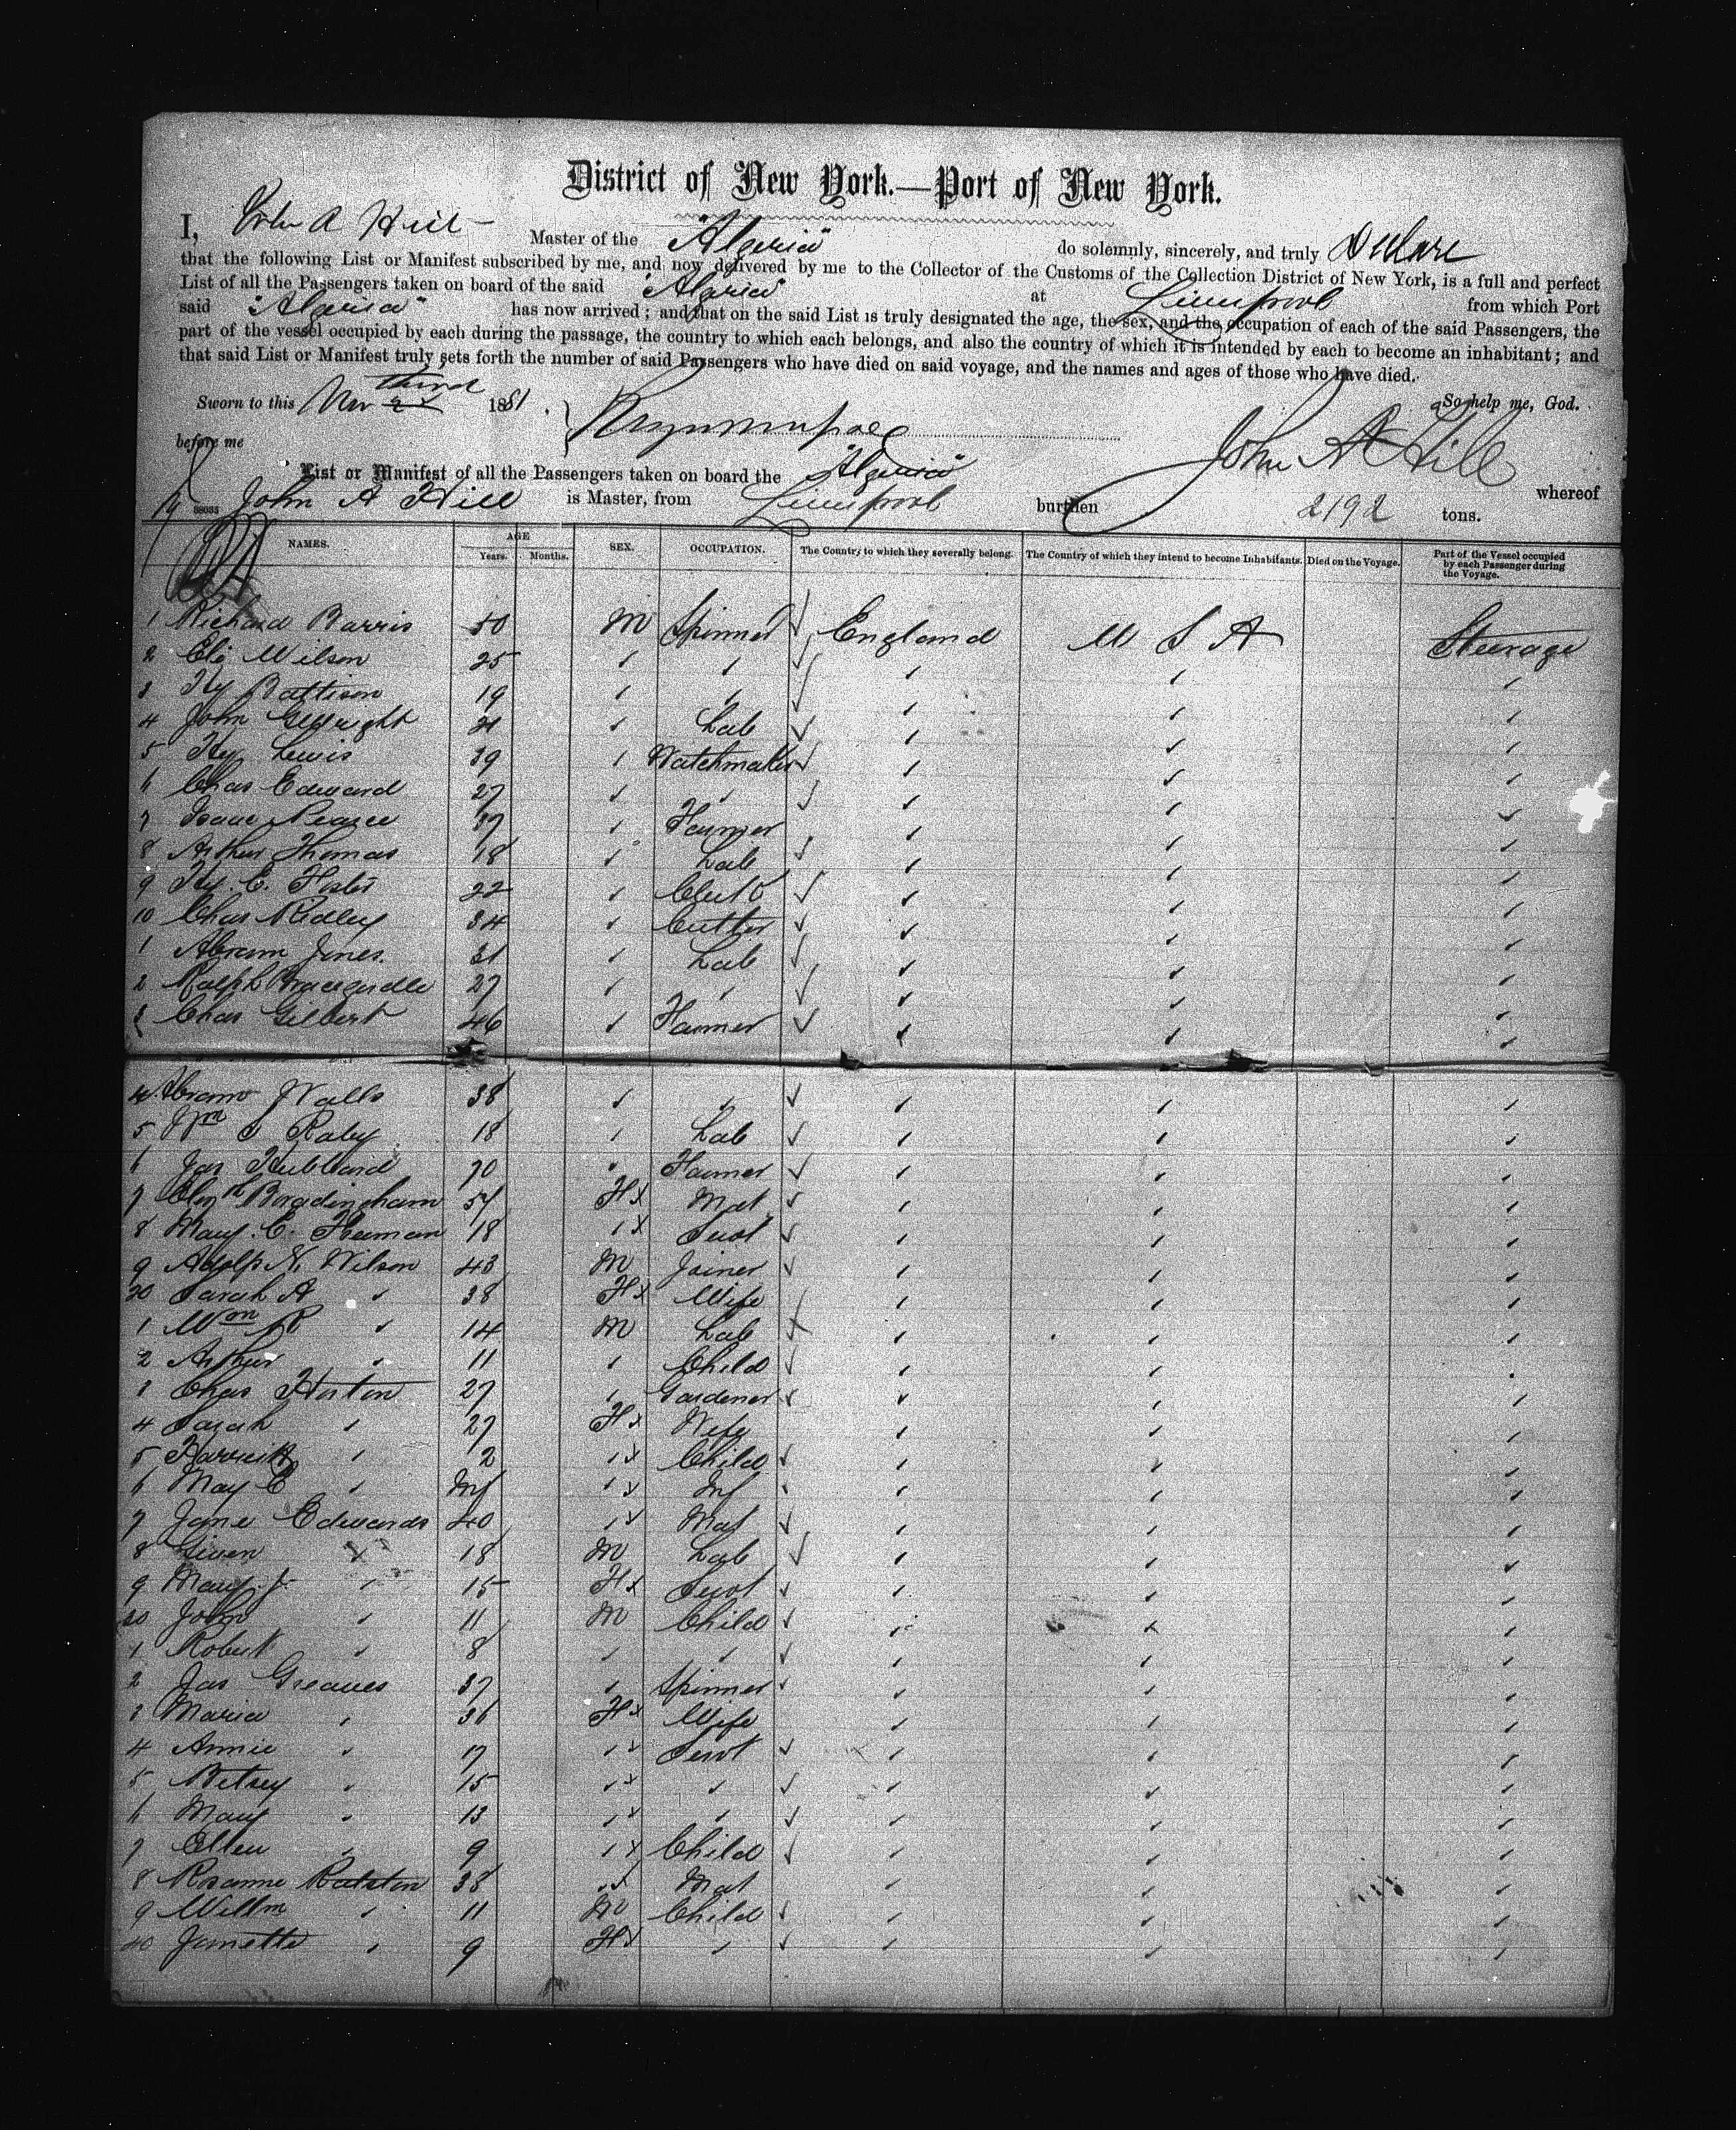 District of New York.—Port of New York.
I, John A Hill Master of the "Algeria" do solemnly, sincerely, and truly Declare
that the following List or Manifest subscribed by me, and now delivered by me to the Collector of the Customs of the Collection District of New York, is a full and perfect
List of all the Passengers taken on board of the said "Algeria" at Liverpool from which Port
said "Algeria" has now arrived; and that on the said List is truly designated the age, the sex, and the occupation of each of the said Passengers, the
part of the vessel occupied by each during the passage, the country to which each belongs, and also the country of which it is intended by each to become an inhabitant; and
that said List or Manifest truly sets forth the number of said Passengers who have died on said voyage, and the names and ages of those who have died.
Sworn to this Nov third 1881 So help me, God.
before me John A Hill
List or Manifest of all the Passengers taken on board the "Algeria" whereof
38035 John A Hill is Master, from Liverpool burthen 2192 tons.
NAMES. AGE Years. Months. SEX. OCCUPATION. The Country to which they severally belong. The Country of which they intend to become Inhabitants. Died on the Voyage. Part of the Vessel occupied by each Passenger during the Voyage.
1 Richard Barris 50 M Spinner England U S A Steerage
2 Eli Wilson 25
3 Hy Battison 19
4 John 21 Lab
5 Hy Lewis 39 Watchmaker
6 Chas Edward 27
7 Isaac Pearce 37 Farmer
8 Arthur Thomas 18 Lab
9 Hy. C. 22 Clerk
10 Chas Ridley 34 Cutler
1 Abram Jones. 31 Lab
2 Ralph Bracegirdle 27
3 Chas Gilbert 46 Farmer
4 Abram Walls 38
5 Wm Raby 18 Lab
6 Jas Hubbard 70 Farmer
7 Elizth 54 F x Mat
8 Mary. E. 18 x Servt
9 Adolp N. Wilson 43 M Joiner
20 Sarah A 38 F x Wife
1 Wm 14 M Lab
2 Arthur 11 Child
3 Chas Horton 27 Gardener
4 Sarah 27 F x Wife
5 Harriet 2 x Child
6 May E Inf x Inf
7 Jane Edwards 40 x Mat
8 Given 18 M Lab
9 Mary J. 15 F x Servt
30 John 11 M Child
1 Robert 8
2 Jas Greaves 37 Spinner
3 Maria 36 F x Wife
4 Annie 17 x Servt
5 Betsey 15 x
6 Mary 13 x
7 Ellen 9 x Child
8 Rosanne Ralston 38 x Mat
9 Willm 11 M Child
40 Janette 9 F x